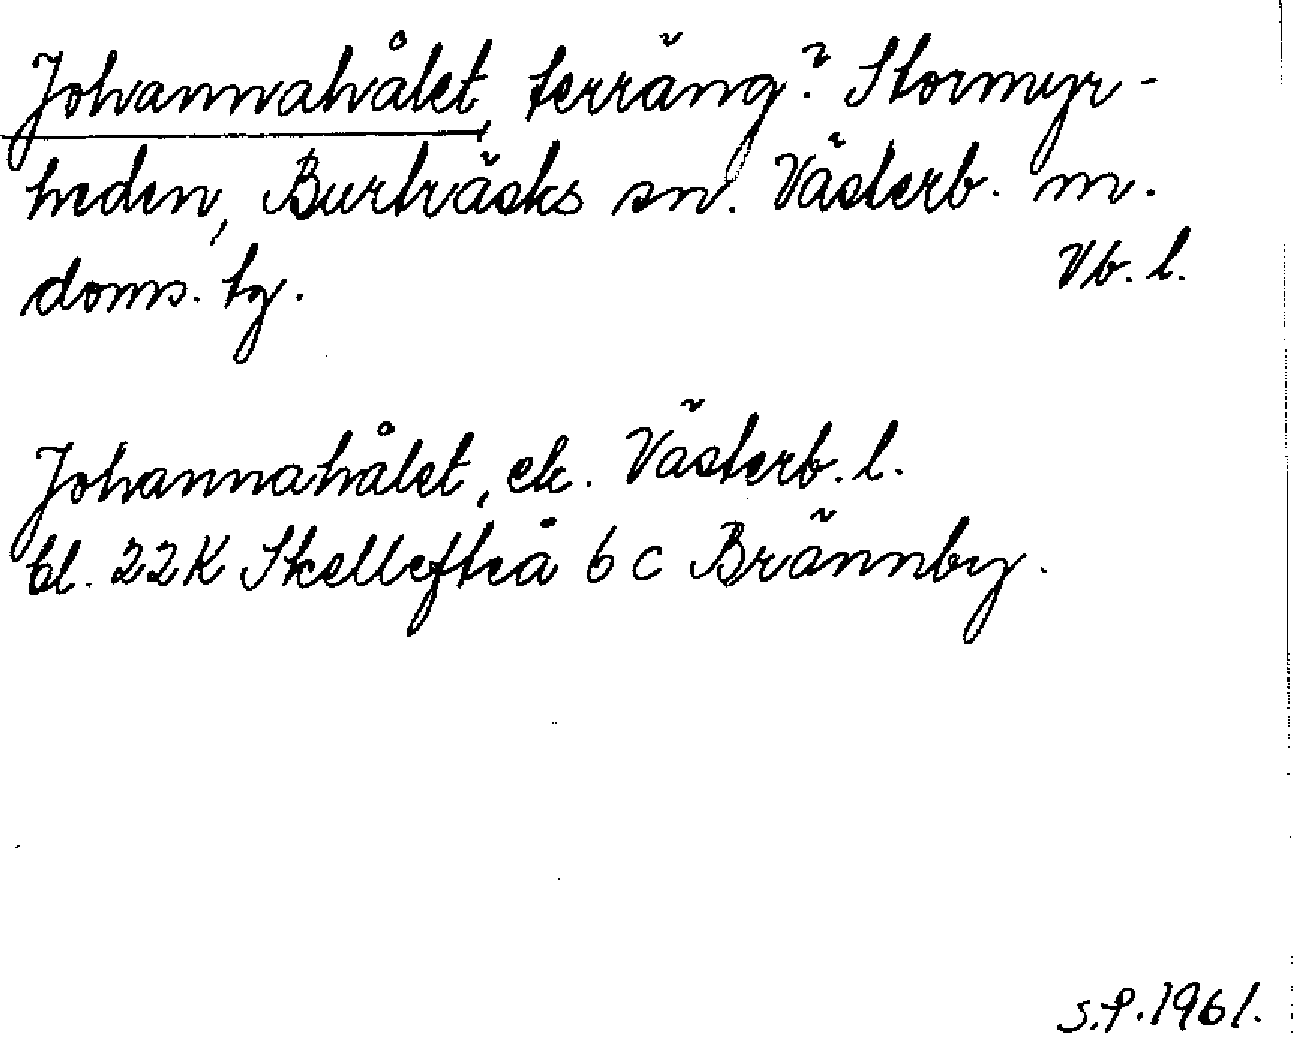 Johannahålet, terräng? Stormyr-
heden, Burträsks sn. Västerb. m.
doms. tg.
Vb. l.
Johannahålet, ek. Västerb. l.
bl. 22K Skellefteå 6 C Brännby.
S.P. 1961.